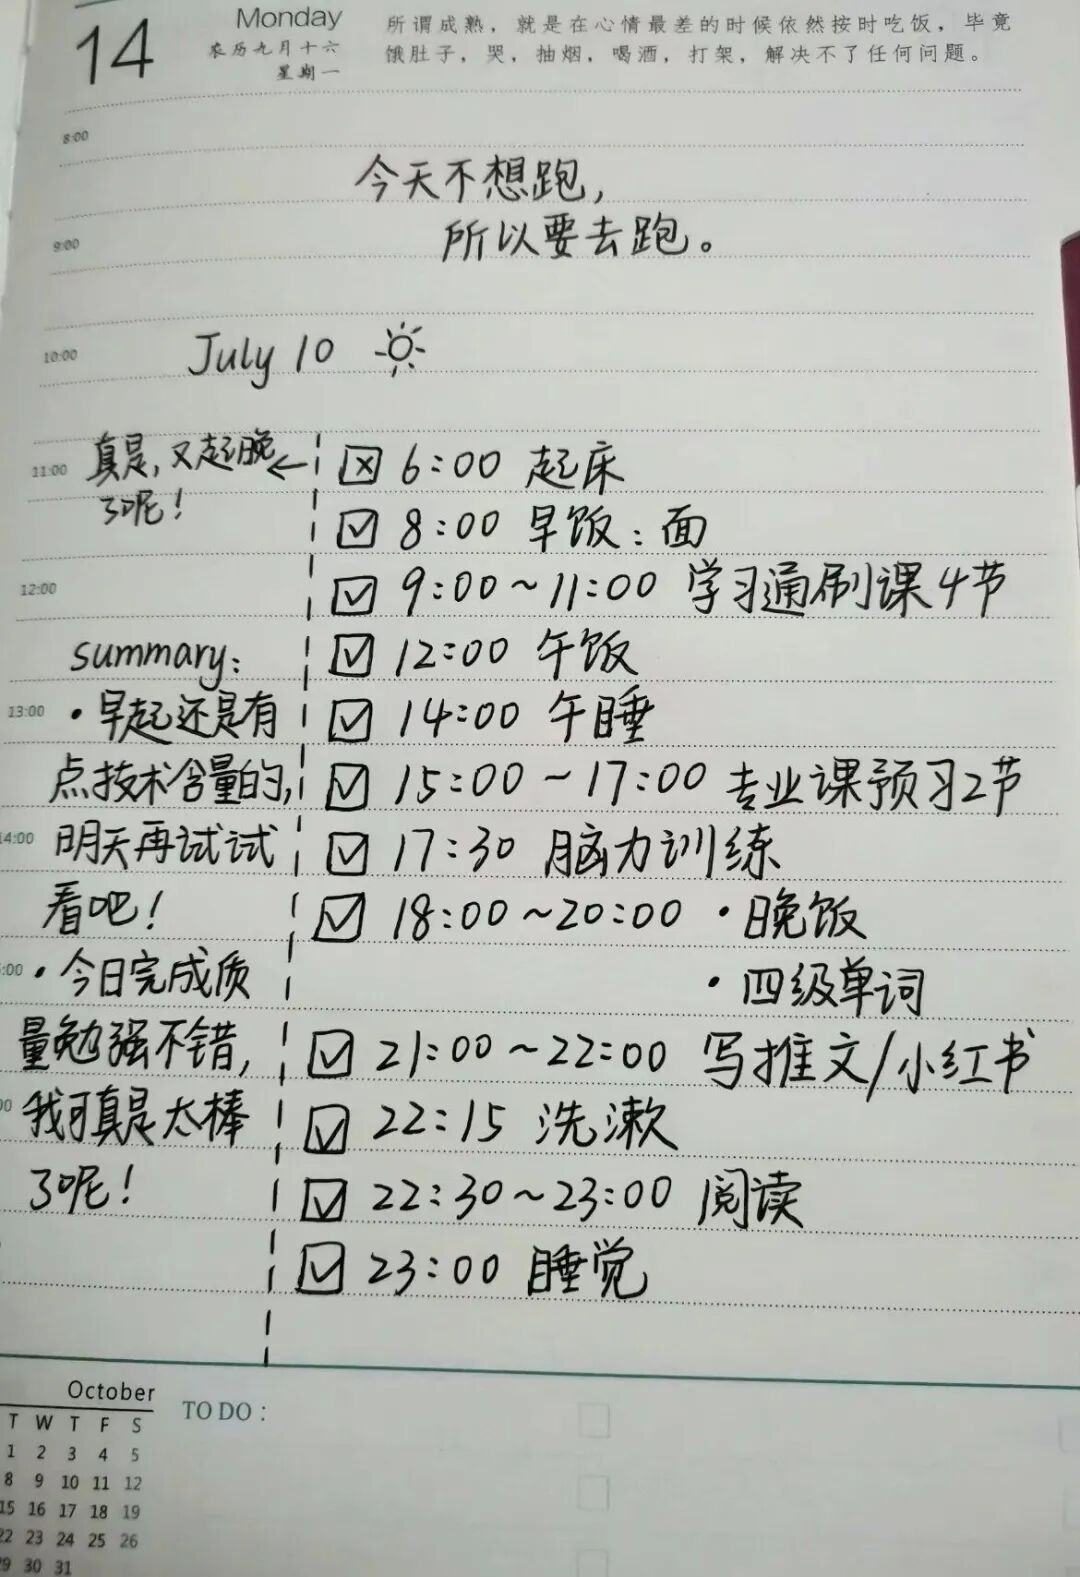 14
Monday
农历九月十六
星期一
所谓成熟，就是在心情最差的时候依然按时吃饭，毕竟
饿肚子，哭，抽烟，喝酒，打架，解决不了任何问题。
8:00
今天不想跑，
所以要去跑。
9:00
10:00
July 10
11:00
真是，又起晚
了呢！
☒ 6:00 起床
☑ 8:00 早饭：面
☑ 9:00~11:00 学习通刷课4节
12:00
☑ 12:00 午饭
☑ 14:00 午睡
☑ 15:00~17:00 专业课预习2节
☑ 17:30 脑力训练
☑ 18:00~20:00 ·晚饭
·四级单词
☑ 21:00~22:00 写推文/小红书
☑ 22:15 洗漱
☑ 22:30~23:00 阅读
☑ 23:00 睡觉
summary:
13:00
·早起还是有
点技术含量的，
14:00
明天再试试
看吧！
·今日完成质
量勉强不错，
我可真是太棒
了呢！
October
T W T F S
1 2 3 4 5
8 9 10 11 12
15 16 17 18 19
22 23 24 25 26
29 30 31
TO DO :